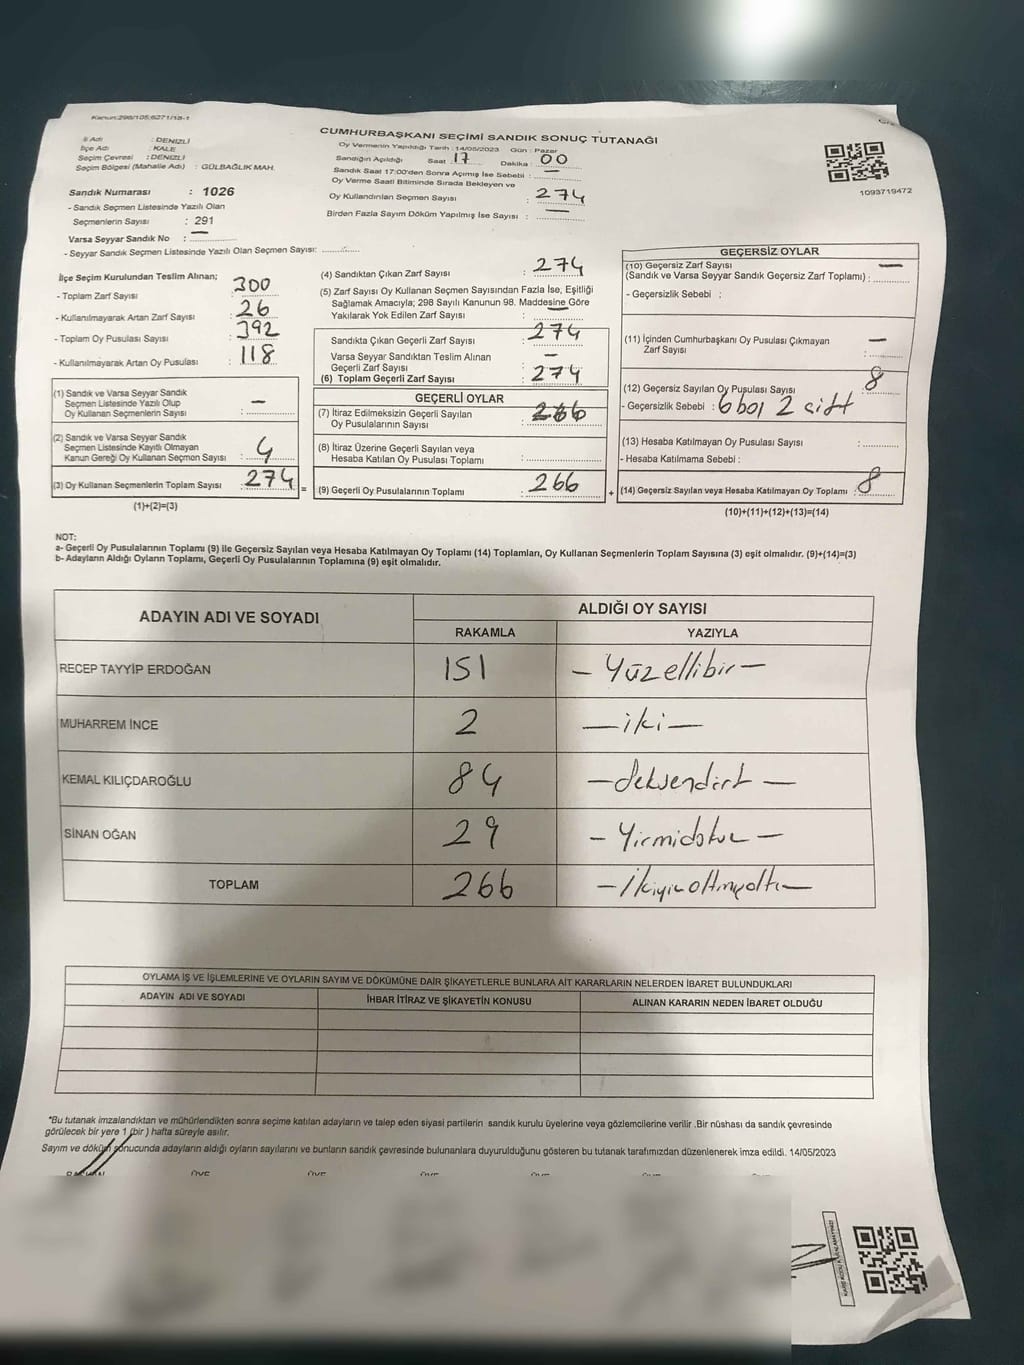 Kanun:298/105;6271/18-1
CUMHURBAŞKANI SEÇİMİ SANDIK SONUÇ TUTANAĞI
İl Adı : DENİZLİ
İlçe Adı : KALE
Seçim Çevresi : DENİZLİ
Seçim Bölgesi (Mahalle Adı) : GÜLBAĞLIK MAH.
Oy Vermenin Yapıldığı Tarih : 14/05/2023 Gün : Pazar
Sandığın Açıldığı Saat : 17 Dakika : 00
Sandık Saat 17:00'den Sonra Açımış İse Sebebi : —
Oy Verme Saati Bitiminde Sırada Bekleyen ve
Oy Kullandırılan Seçmen Sayısı : 274
Birden Fazla Sayım Döküm Yapılmış İse Sayısı : —
1093719472
Sandık Numarası : 1026
- Sandık Seçmen Listesinde Yazılı Olan
Seçmenlerin Sayısı : 291
Varsa Seyyar Sandık No : —
- Seyyar Sandık Seçmen Listesinde Yazılı Olan Seçmen Sayısı: ............
İlçe Seçim Kurulundan Teslim Alınan;
- Toplam Zarf Sayısı : 300
- Kullanılmayarak Artan Zarf Sayısı : 26
- Toplam Oy Pusulası Sayısı : 392
- Kullanılmayarak Artan Oy Pusulası : 118
(1) Sandık ve Varsa Seyyar Sandık
Seçmen Listesinde Yazılı Olup
Oy Kullanan Seçmenlerin Sayısı : —
(2) Sandık ve Varsa Seyyar Sandık
Seçmen Listesinde Kayıtlı Olmayan
Kanun Gereği Oy Kullanan Seçmen Sayısı : 4
(3) Oy Kullanan Seçmenlerin Toplam Sayısı : 274 =
(1)+(2)=(3)
(4) Sandıktan Çıkan Zarf Sayısı : 274
(5) Zarf Sayısı Oy Kullanan Seçmen Sayısından Fazla İse, Eşitliği
Sağlamak Amacıyla; 298 Sayılı Kanunun 98. Maddesine Göre
Yakılarak Yok Edilen Zarf Sayısı : —
Sandıkta Çıkan Geçerli Zarf Sayısı : 274
Varsa Seyyar Sandıktan Teslim Alınan
Geçerli Zarf Sayısı : —
(6) Toplam Geçerli Zarf Sayısı : 274
GEÇERLİ OYLAR
(7) İtiraz Edilmeksizin Geçerli Sayılan
Oy Pusulalarının Sayısı : 266
(8) İtiraz Üzerine Geçerli Sayılan veya
Hesaba Katılan Oy Pusulası Toplamı :
(9) Geçerli Oy Pusulalarının Toplamı : 266 +
GEÇERSİZ OYLAR
(10) Geçersiz Zarf Sayısı
(Sandık ve Varsa Seyyar Sandık Geçersiz Zarf Toplamı) : —
- Geçersizlik Sebebi :
(11) İçinden Cumhurbaşkanı Oy Pusulası Çıkmayan
Zarf Sayısı : —
(12) Geçersiz Sayılan Oy Pusulası Sayısı : 8
- Geçersizlik Sebebi : 6 boş 2 çift
(13) Hesaba Katılmayan Oy Pusulası Sayısı :
- Hesaba Katılmama Sebebi :
(14) Geçersiz Sayılan veya Hesaba Katılmayan Oy Toplamı : 8
(10)+(11)+(12)+(13)=(14)
NOT:
a- Geçerli Oy Pusulalarının Toplamı (9) ile Geçersiz Sayılan veya Hesaba Katılmayan Oy Toplamı (14) Toplamları, Oy Kullanan Seçmenlerin Toplam Sayısına (3) eşit olmalıdır. (9)+(14)=(3)
b- Adayların Aldığı Oyların Toplamı, Geçerli Oy Pusulalarının Toplamına (9) eşit olmalıdır.
ADAYIN ADI VE SOYADI ALDIĞI OY SAYISI
RAKAMLA YAZIYLA
RECEP TAYYİP ERDOĞAN 151 – Yüzellibir –
MUHARREM İNCE 2 – iki –
KEMAL KILIÇDAROĞLU 84 – Seksendört –
SİNAN OĞAN 29 – Yirmidokuz –
TOPLAM 266 – İkiyüzaltmışaltı –
OYLAMA İŞ VE İŞLEMLERİNE VE OYLARIN SAYIM VE DÖKÜMÜNE DAİR ŞİKAYETLERLE BUNLARA AİT KARARLARIN NELERDEN İBARET BULUNDUKLARI
ADAYIN ADI VE SOYADI İHBAR İTİRAZ VE ŞİKAYETİN KONUSU ALINAN KARARIN NEDEN İBARET OLDUĞU
*Bu tutanak imzalandıktan ve mühürlendikten sonra seçime katılan adayların ve talep eden siyasi partilerin sandık kurulu üyelerine veya gözlemcilerine verilir .Bir nüshası da sandık çevresinde
görülecek bir yere 1 (bir ) hafta süreyle asılır.
Sayım ve döküm sonucunda adayların aldığı oyların sayılarını ve bunların sandık çevresinde bulunanlara duyurulduğunu gösteren bu tutanak tarafımızdan düzenlenerek imza edildi. 14/05/2023